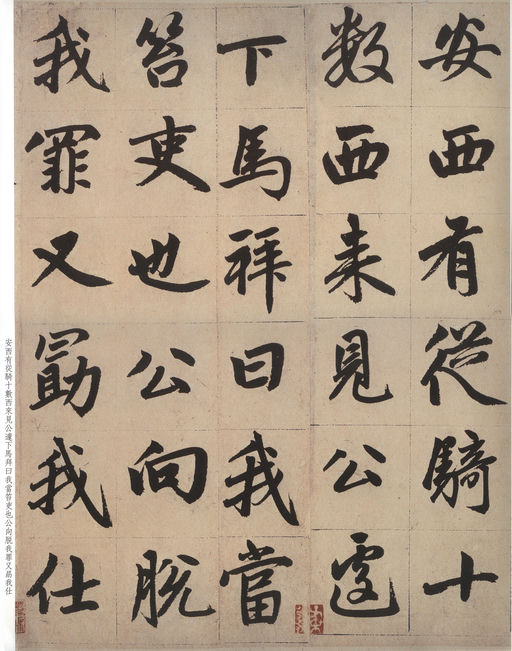 安西有従騎十
數西来見公遽
下馬拜曰我當
笞吏也公向脱
我罪又勖我仕
安西有從騎十數西來見公遽下馬拜曰我當笞吏也公向脫我罪又勗我仕